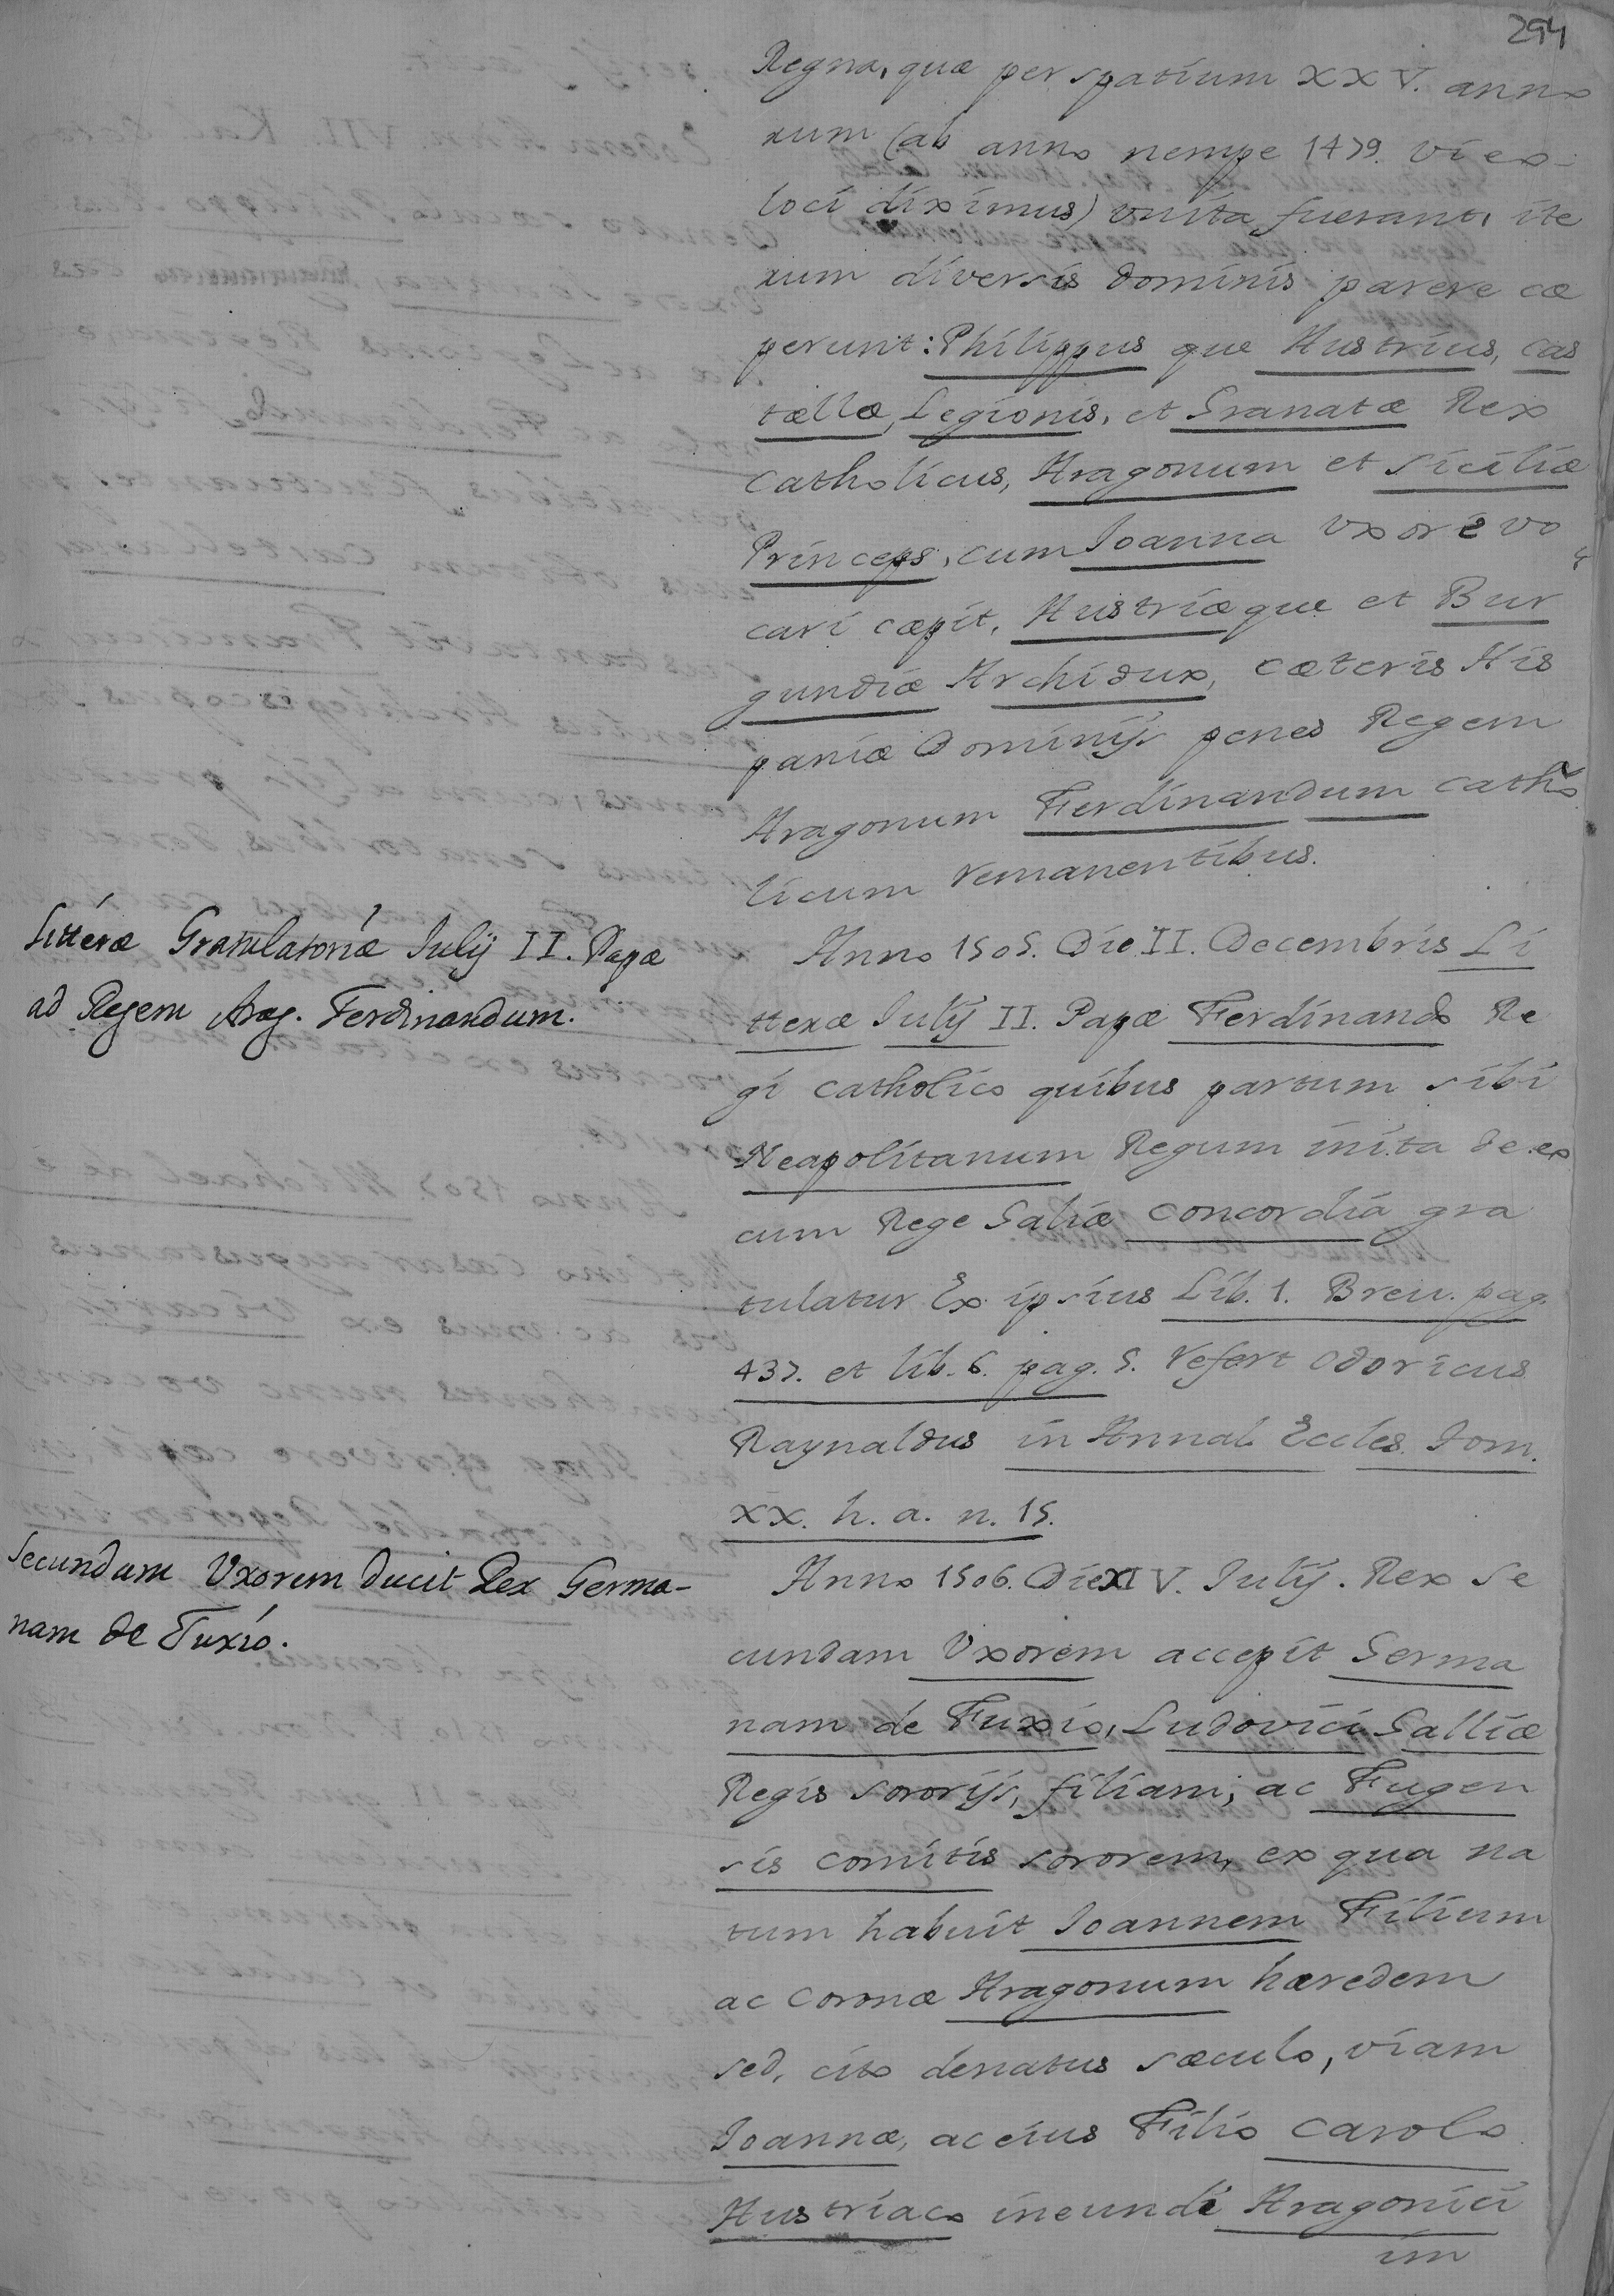 294
Regna, quæ per spatium XXV. anno
rum (ab anno nempe 1479. vi eo
loci diximus) vnita fuerant, ite
rum diversis dominis parere cæ
perunt: Philippus que Austrius, Cas
tællæ, Legionis, et Granatæ Rex
Catholicus, Aragonum et Siciliæ
Princeps, cum Ioanna Vxore vo
cari cæpit, Austriæque et Bur
gundiæ Archidux, cæteris His
paniæ Dominijs penes Regem
Aragonum Ferdinandum Catho
licum remanentibus.
Litteræ Gratulatoriæ Iulij II. Papæ
ad Regem Arag. Ferdinandum.
Anno 1505. Die II. Decembris Li
tteræ Iulij II. Papæ Ferdinando Re
gi Catholico quibus partum sibi
Neapolitanum Regum inita de eo
cum Rege Galiæ Concordia gra
tulatur Ex ipsius Lib. 1. Breu. pag.
437. et lib. 6. pag. 5. refert Odoricus
Raynaldus in Annal. Eccles. tom.
XX. h. a. n. 15.
Secundam Vxorem ducit Rex Germa-
nam de Fuxio.
Anno 1506. Die XIV. Iulij. Rex Se
cundam Vxorem accepit Germa
nam de Fuxio, Ludovici Galliæ
Regis sororijs, filiam; ac Fugen
sis comitis sororem, ex qua na
tum habuit Ioannem Filium
ac Coronæ Aragonum hæredem
sed, cito denatus sæculo, viam
Ioannæ, ac eius Filio Carolo
Austriaco ineundi Aragonici
im